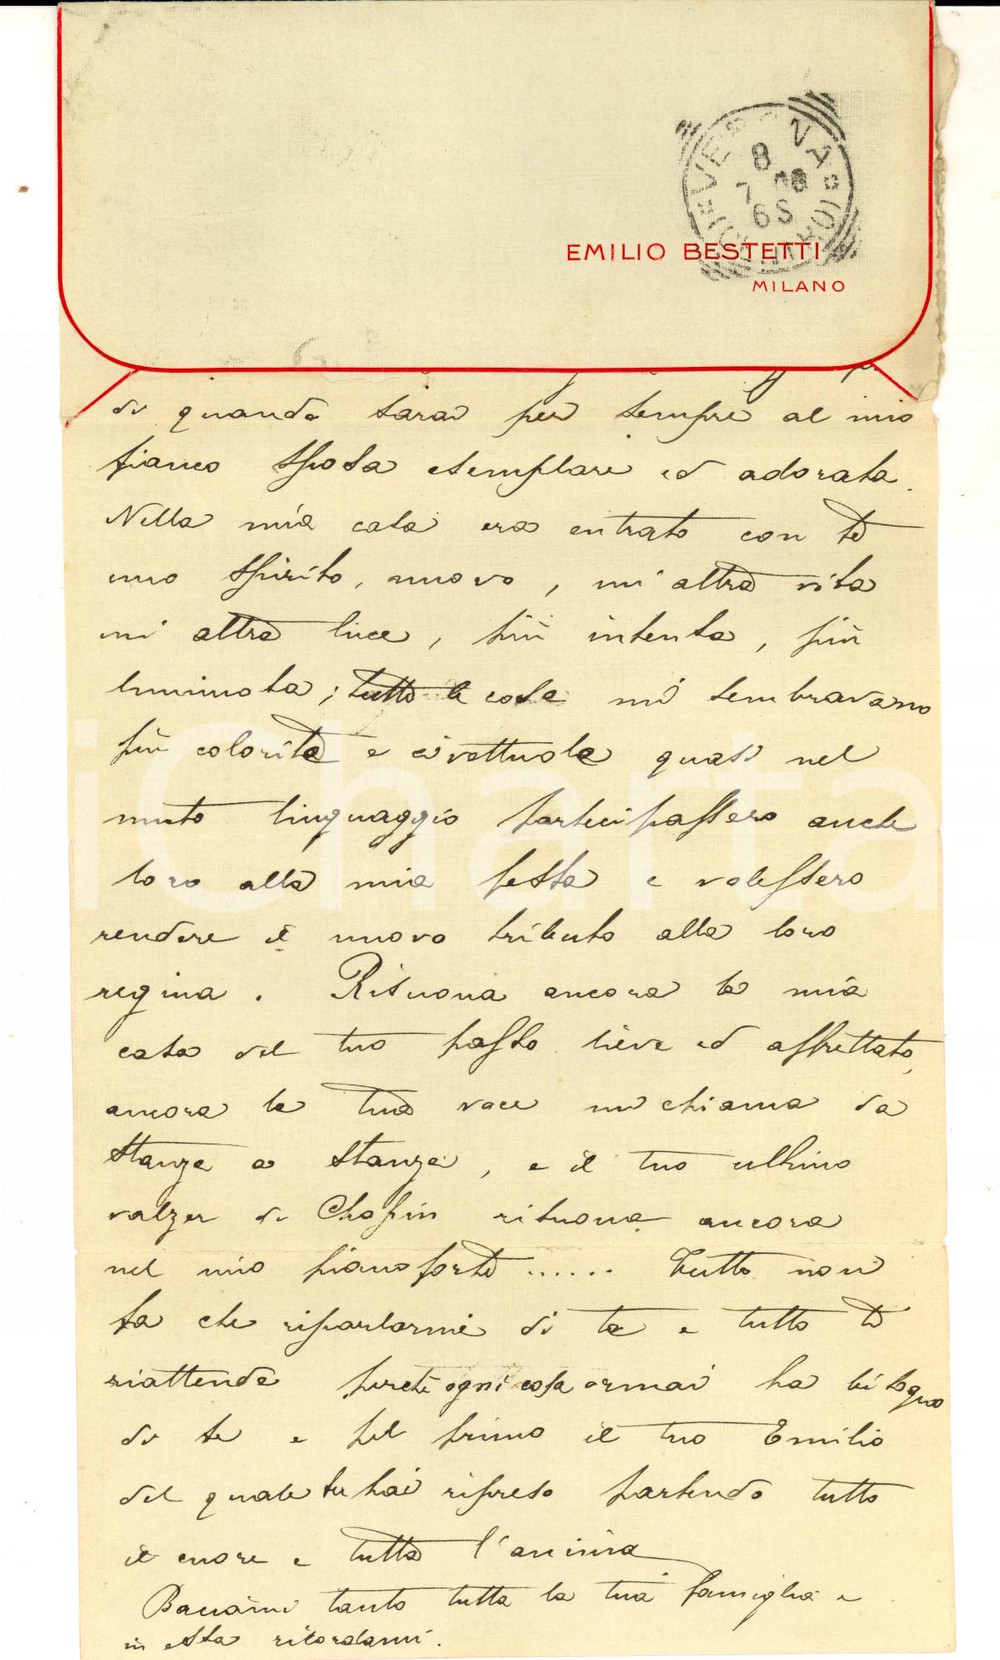 GENOVA
8
7 08
6S
EMILIO BESTETTI
MILANO
di quando sarai per sempre al mio
fianco sposa esemplare ed adorata.
Nella mia casa era entrato con te
uno spirito, nuovo, un'altra vita
un'altra luce, più intensa, più
luminosa; tutte le cose mi sembravano
più colorite e civettuole quasi nel
muto linguaggio partecipassero anche
loro alla mia festa e volessero
rendere il nuovo tributo alla loro
regina. Risuona ancora la mia
casa del tuo passo lieve ed affrettato,
ancora la tua voce mi chiama da
stanza a stanza, e il tuo ultimo
valzer di Chopin risuona ancora
nel mio pianoforte...... Tutto non
fa che riparlarmi di te e tutto ti
riattende perchè ogni cosa ormai ha bisogno
di te e pel primo il tuo Emilio
del quale tu hai ripreso partendo tutto
il cuore e tutta l'anima
Baciami tanto tutta la tua famiglia e
in essa ricordami.
iCharta